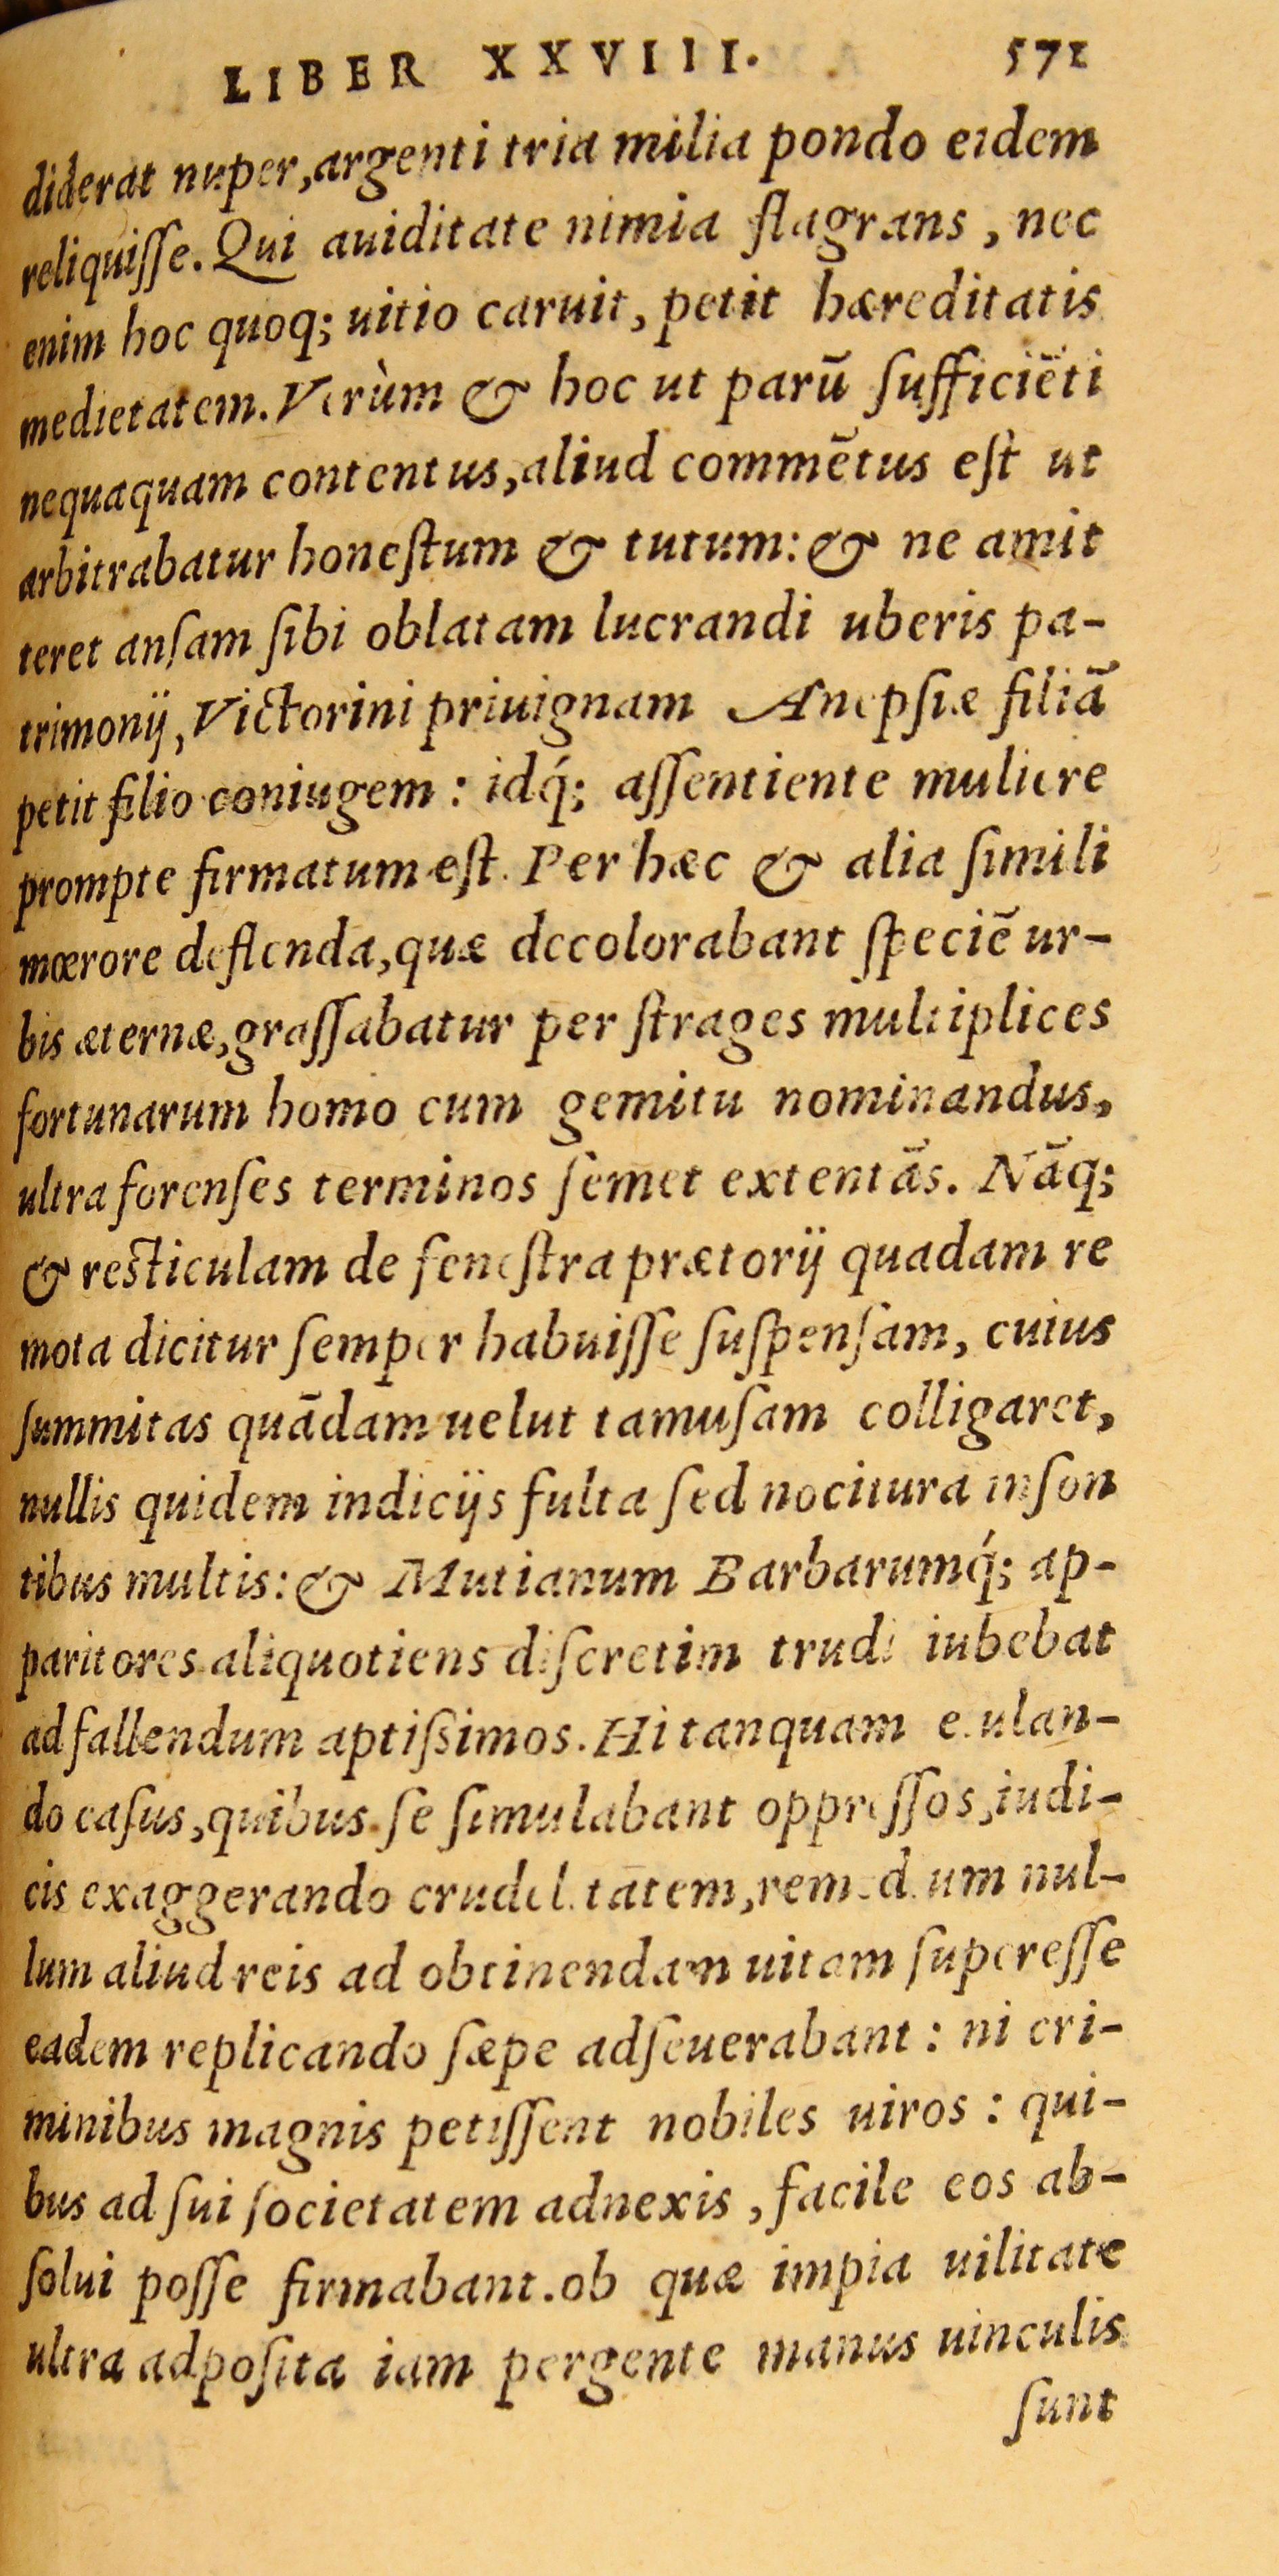 LIBER XXVIII. 571
diderat nuper, argenti tria milia pondo eidem
reliquiſſe. Qui auiditate nimia flagrans, nec
enim hoc quoq; uitio caruit, petit hæreditatis
medietatem. Verùm & hoc ut parū ſufficiēti
nequaquam contentus, aliud commētus eſt ut
arbitrabatur honeſtum & tutum: & ne amit
teret anſam ſibi oblatam lucrandi uberis pa-
trimonij, Victorini priuignam Anepſiæ filiā
petit filio coniugem: idq́; aſſentiente muliere
prompte firmatum eſt. Per hæc & alia ſimili
mœrore deflenda, quæ decolorabant ſpeciē ur-
bis æternæ, graſſabatur per ſtrages multiplices
fortunarum homo cum gemitu nominandus,
ultra forenſes terminos ſemet extentās. Nāq;
& reſticulam de feneſtra prætorij quadam re
mota dicitur ſemper habuiſſe ſuſpenſam, cuius
ſummitas quādam uelut tamuſam colligaret,
nullis quidem indicijs fulta ſed nocitura inſon
tibus multis: & Mutianum Barbarumq́; ap-
paritores aliquotiens diſcretim trudi iubebat
ad fallendum aptiſsimos. Hi tanquam eiulan-
do caſus, quibus ſe ſimulabant oppreſſos, iudi-
cis exaggerando crudelitatem, remedium nul-
lum aliud reis ad obtinendam uitam ſupereſſe
eadem replicando ſæpe adſeuerabant: ni cri-
minibus magnis petiſſent nobiles uiros: qui-
bus ad ſui ſocietatem adnexis, facile eos ab-
ſolui poſſe firmabant. ob quæ impia uilitate
ultra adpoſita iam pergente manus uinculis
ſunt